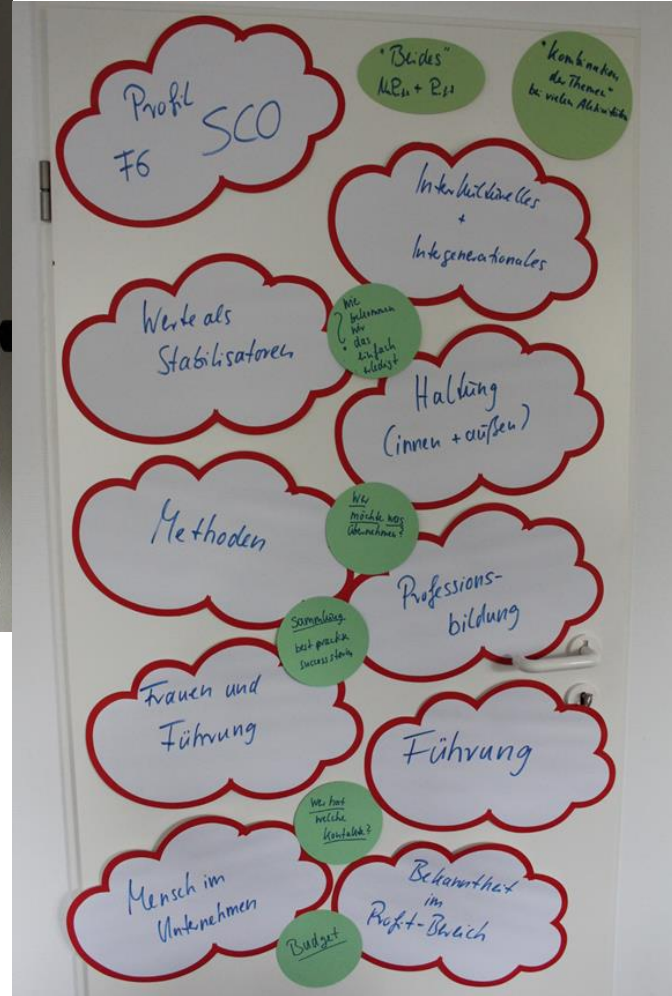 Profil
F6 SCO
"Beides"
"Kombination
der Themen"
bei vielen Aktivitäten
Interkulturelles
+
Intergenerationales
Werte als
Stabilisatoren
Wie
bekommen
wir
das
einfach
erledigt
Haltung
(innen + außen)
Methoden
Wer
möchte was
übernehmen?
Professions-
bildung
Sammlung
best practice
success storys
Frauen und
Führung
Führung
Wer hat
welche
Kontakte?
Mensch im
Unternehmen
Bekanntheit
im
Profit-Bereich
Budget